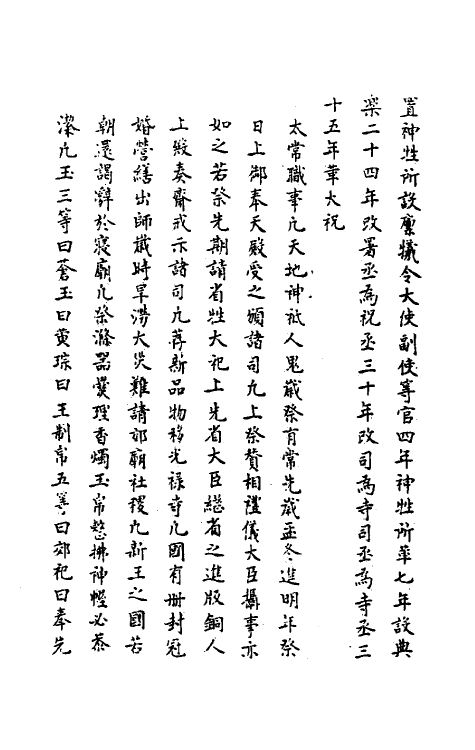 置神牲所設廩犧令大使副使等官四年神牲所革七年設典
樂二十四年改署丞為祝丞三十年改司為寺司丞為寺丞三
十五年革大祝
太常職事凡天地神祗人鬼歲祭有常先歲孟冬進明年祭
日上御奉天殿受之頒諸司凡上祭贊相禮儀大臣攝事亦
如之若祭先期請省牲大祀上先省大臣繼省之進版銅人
上殿奏齋戒示諸司凡薦新品物移光祿寺凡國有冊封冠
婚營繕出師歲時旱澇大災難請郊廟社稷凡新王之國若
朝還謁辭於寢廟凡祭滌器爨理香燭玉帛整拂神幄必恭
潔凡玉三等曰蒼玉曰黄琮曰玉制帛五等曰郊祀曰奉先